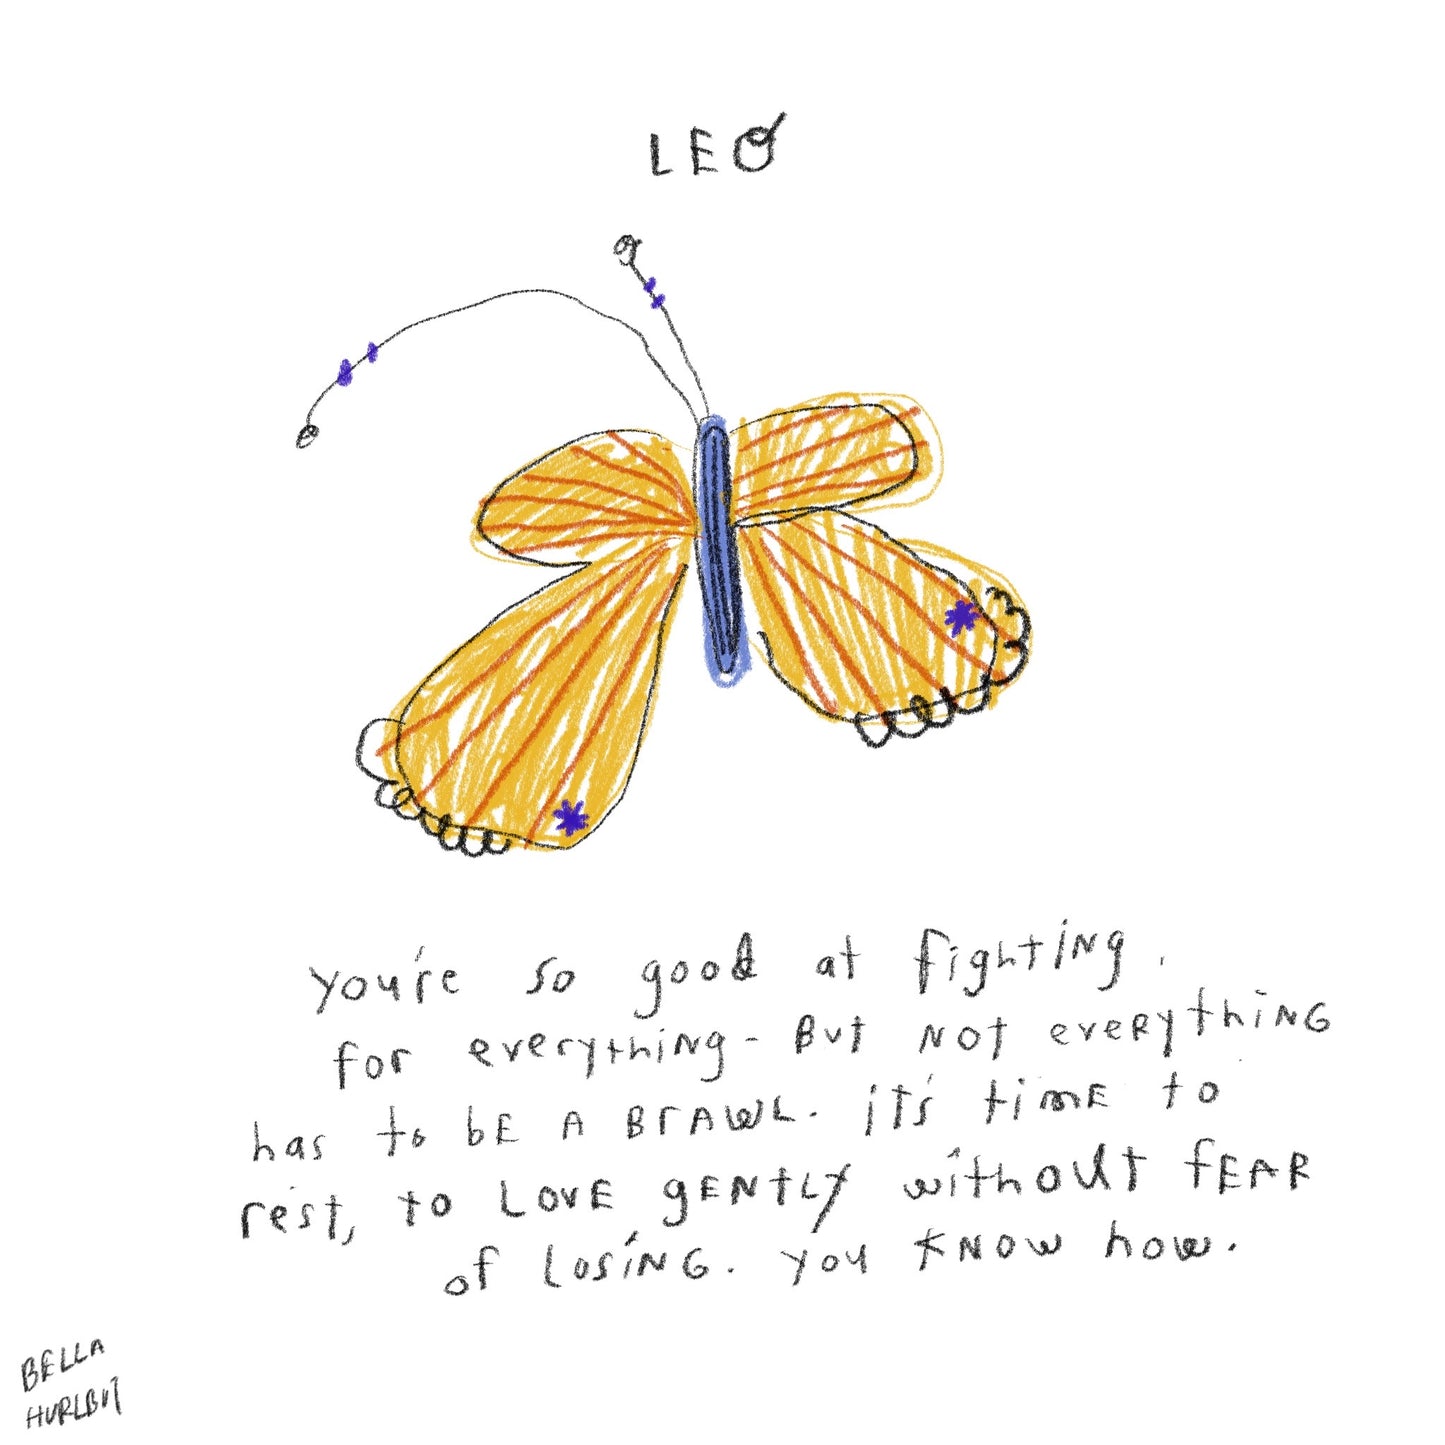 LEO
you're so good at fighting.
for everything - But NOT everything
has to bE A BrAWL. it's timE to
rest, to LOVE gENtLy without fEAR
of LosiNG. you KNOW how.
BELLA
HURLBUT